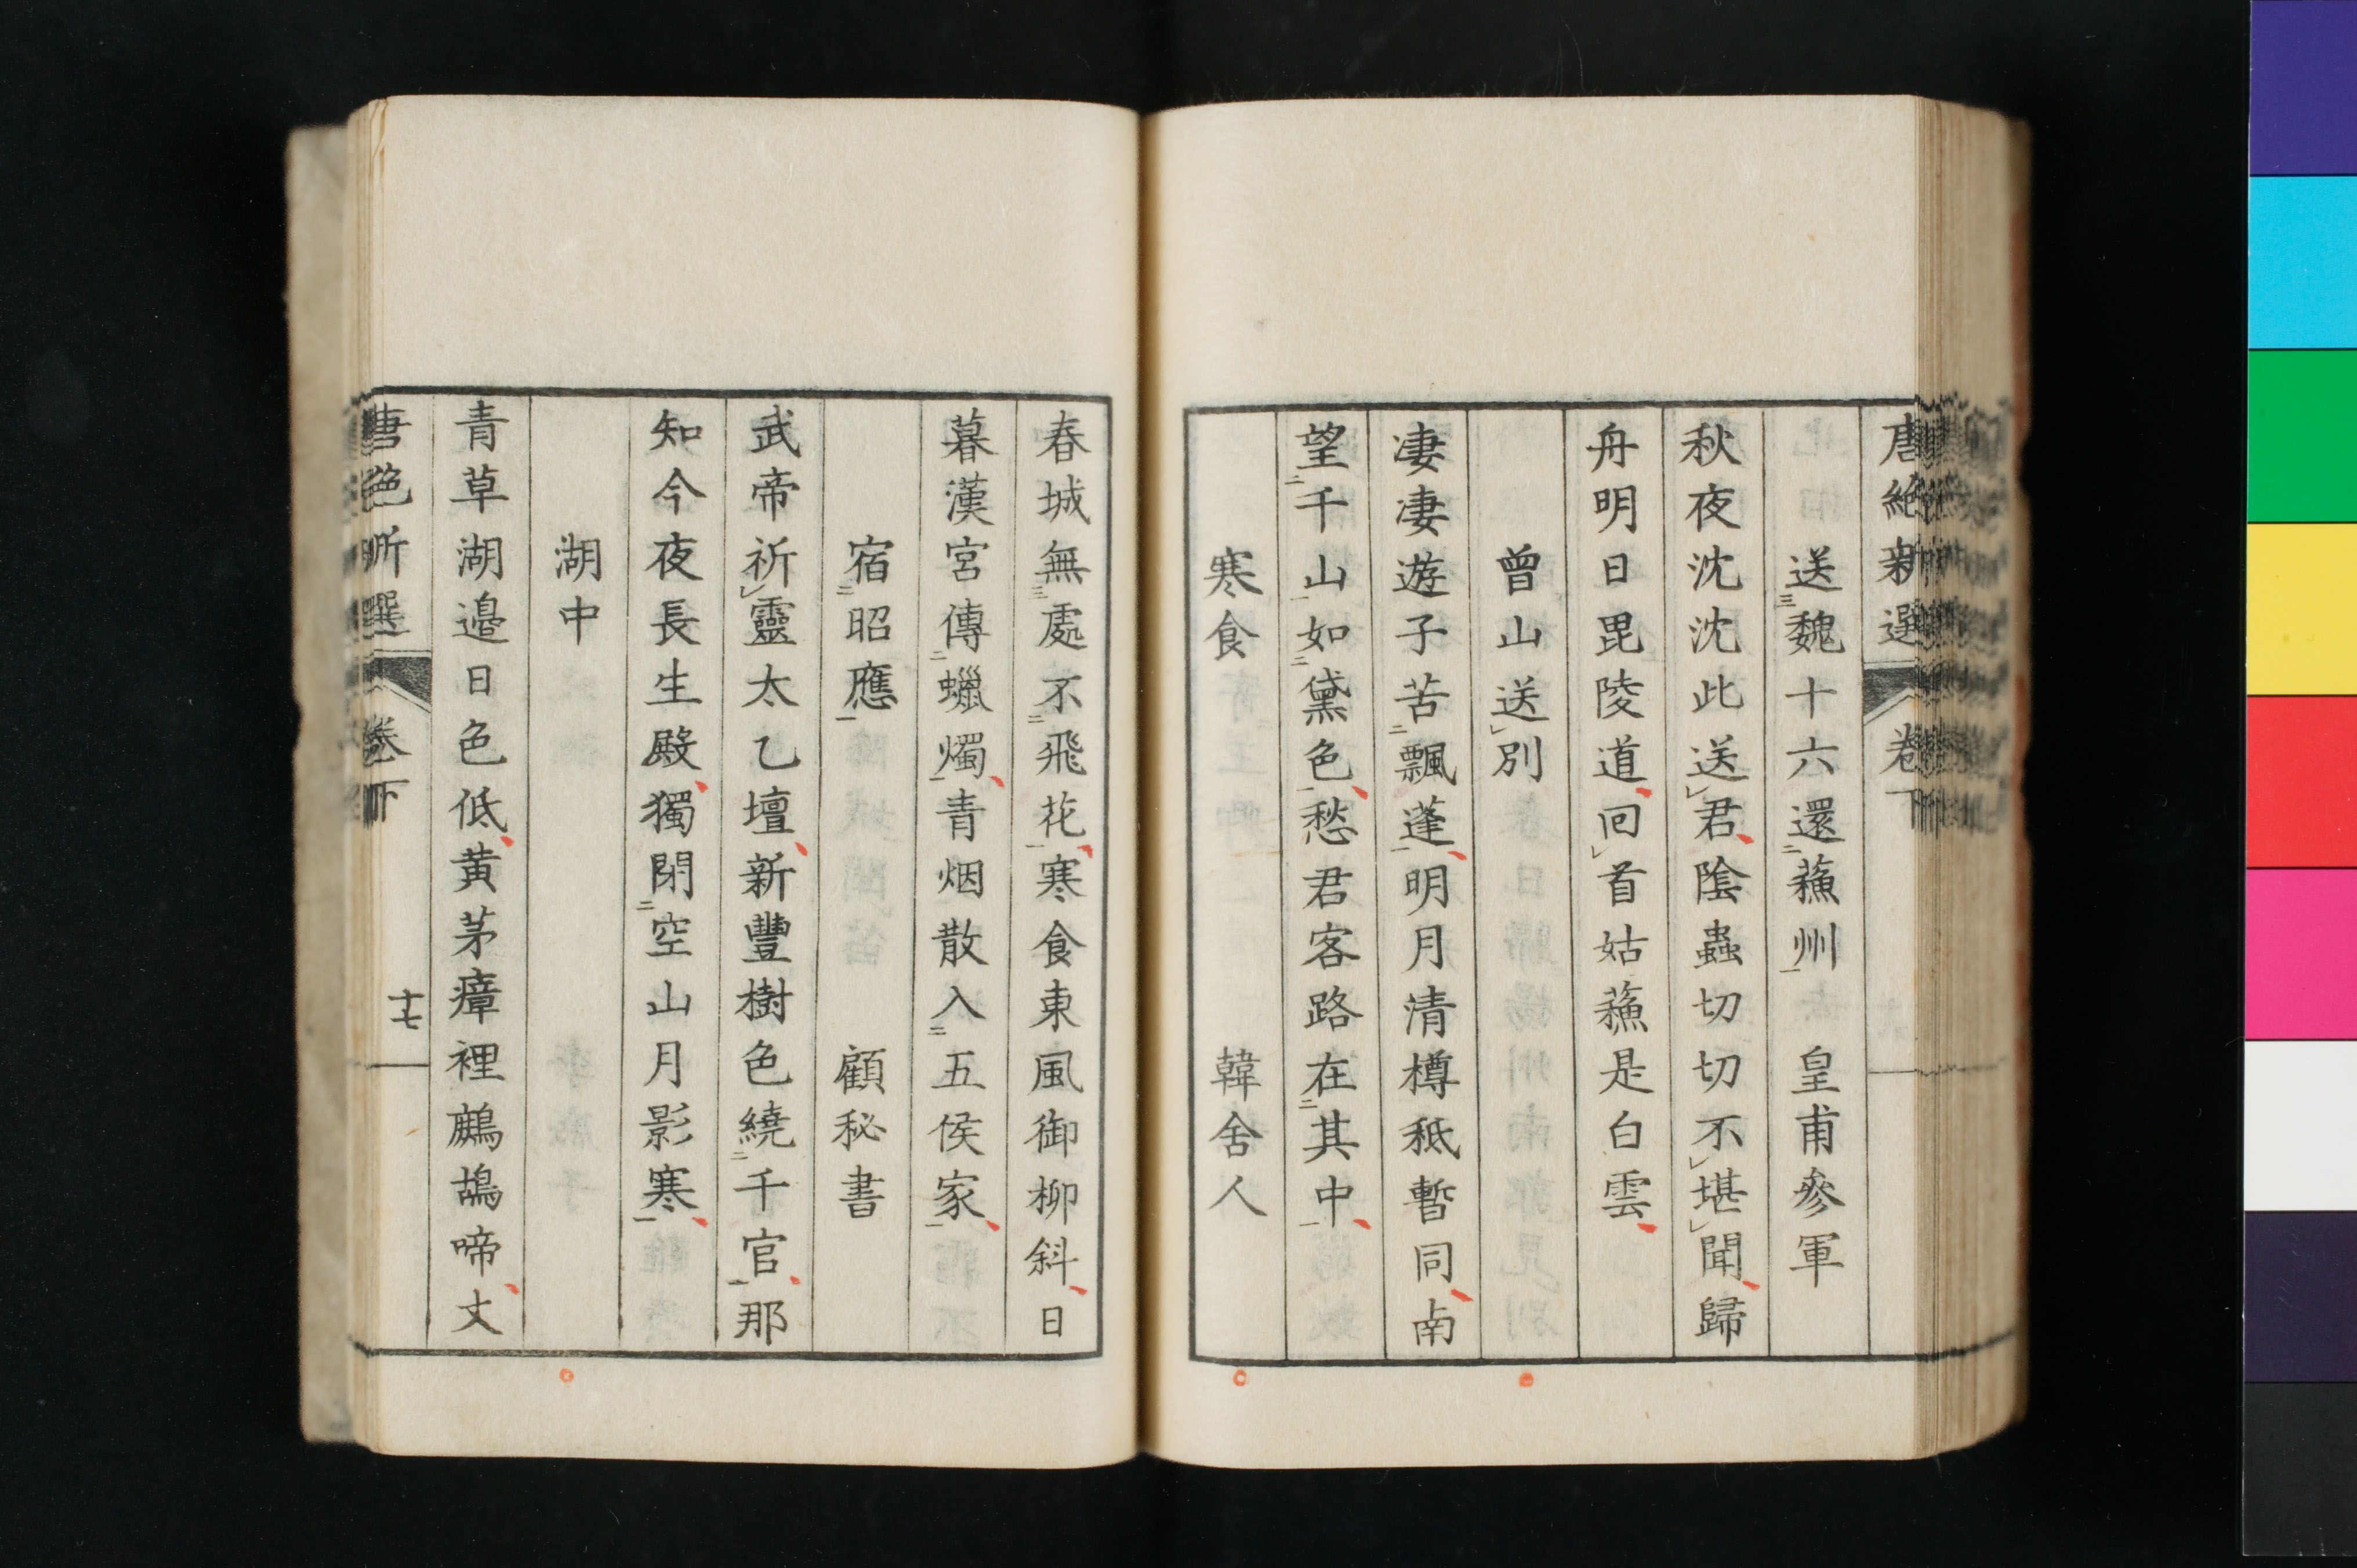 唐絶新選 卷下
送魏十六還蘓州 皇甫參軍
秋夜沈沈此送君陰蟲切切不堪聞歸
舟明日毘陵道回首姑蘓是白雲
曾山送別
凄凄遊子苦飄蓬明月清樽秪暫同南
望千山如黛色愁君客路在其中
寒食 韓舍人
春城無處不飛花寒食東風御柳斜日
暮漢宮傳蠟燭青烟散入五侯家
宿昭應 顧秘書
武帝祈靈太乙壇新豐樹色繞千官那
知今夜長生殿獨閉空山月影寒
湖中
青草湖邉日色低黄茅瘴裡鷓鴣啼丈
唐絶新選 卷下 十七